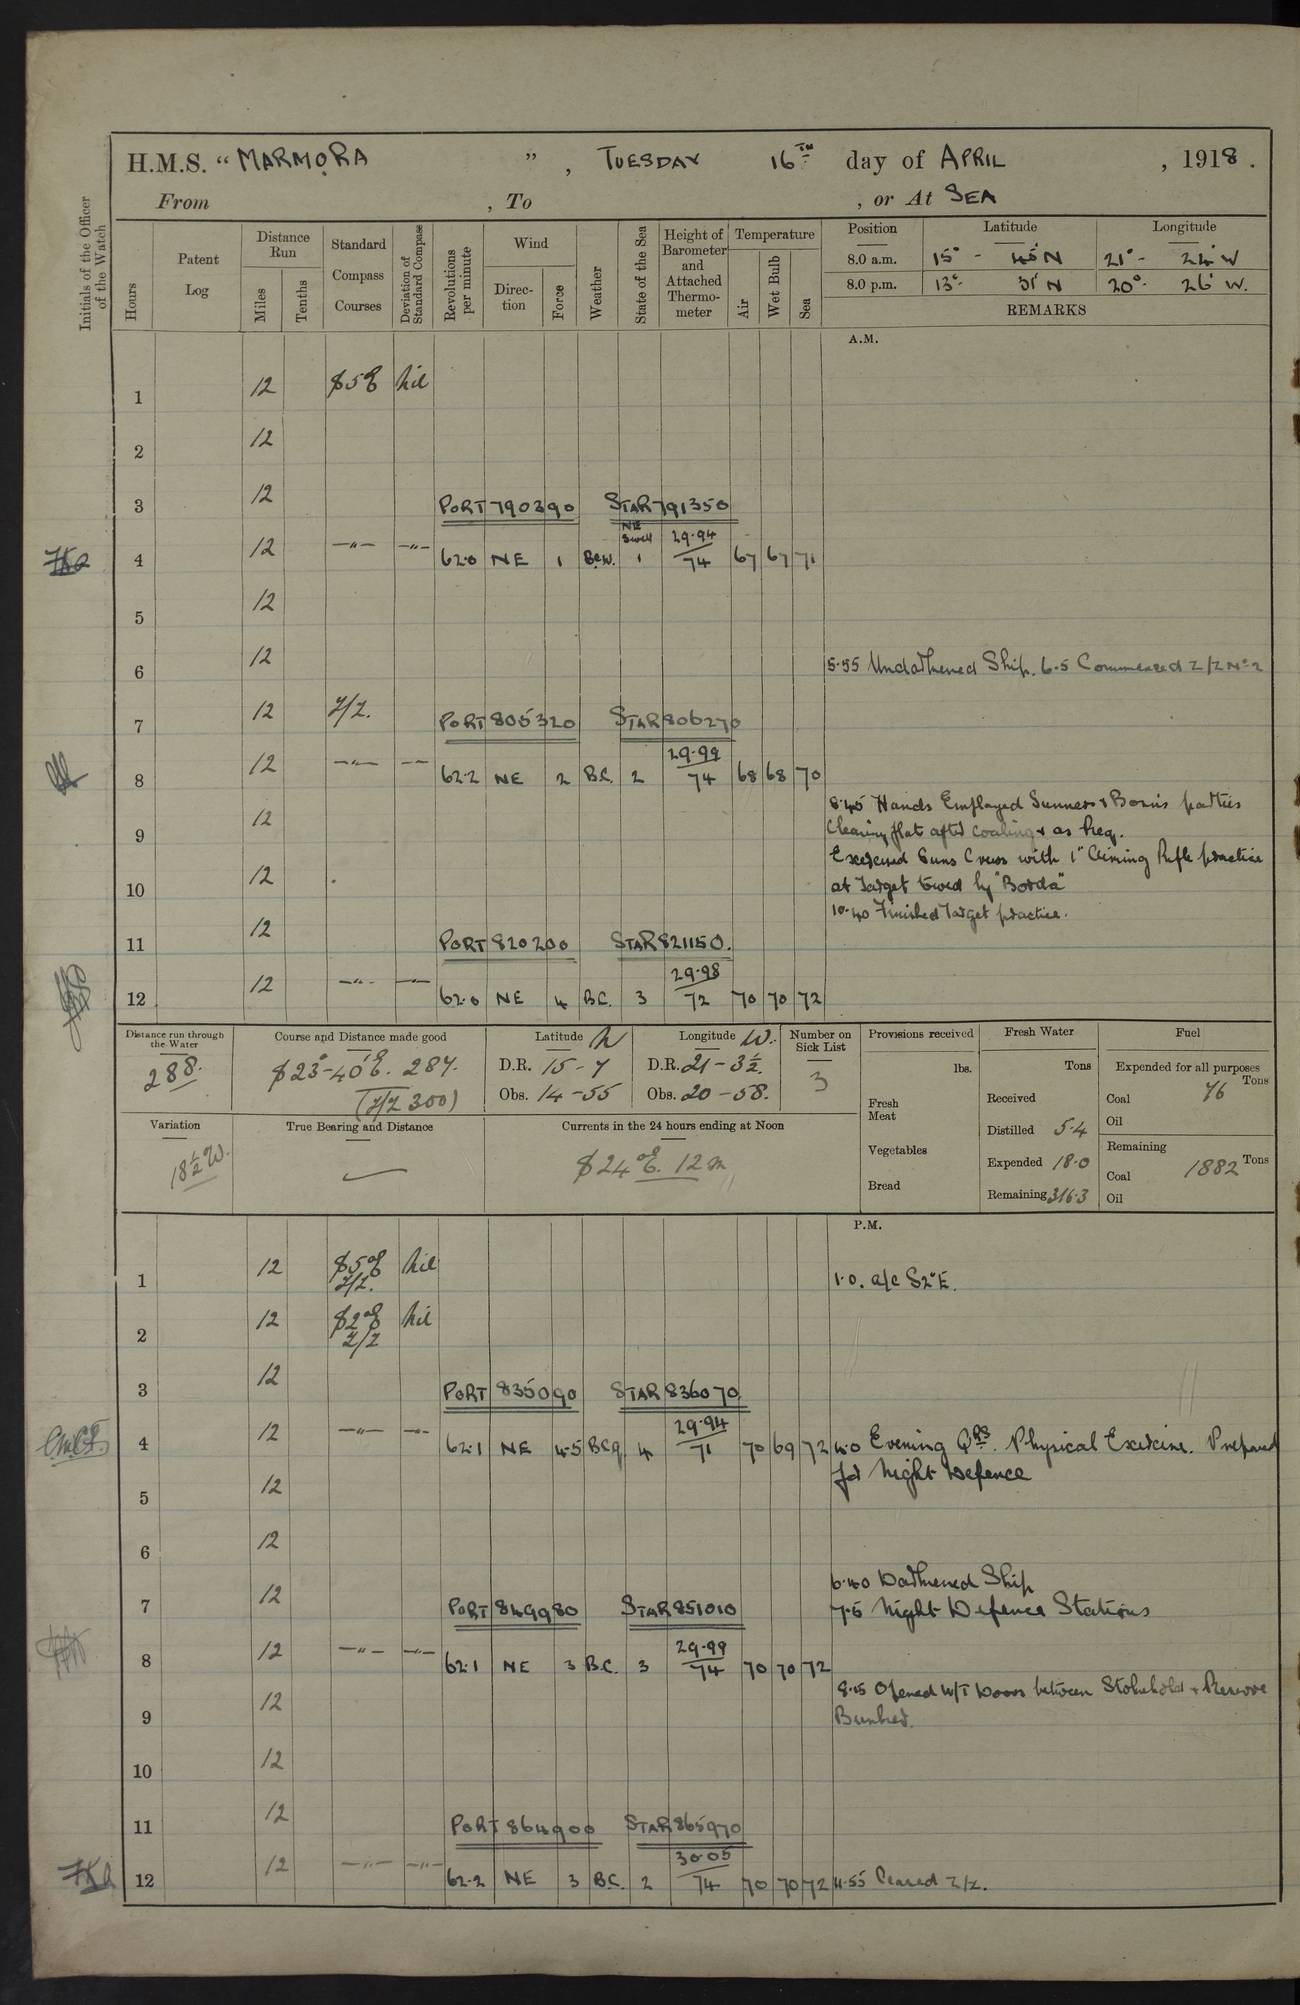 H.M.S. “ MARMORA ” , TUESDAY 16TH day of APRIL , 1918 .
From , To , or At SEA
Initials of the Officer of the Watch
Hours
Patent Log
Distance Run
Miles
Tenths
Standard Compass Courses
Deviation of Standard Compass
Revolutions per minute
Wind
Direction
Force
Weather
State of the Sea
Height of Barometer and Attached Thermometer
Temperature
Air
Wet Bulb
Sea
Position Latitude Longitude
8.0 a.m. 15° - 45' N 21° - 24' W
8.0 p.m. 13° 31' N 20° 26' W.
REMARKS
A.M.
1 12 S5°E Nil
2 12
3 12 PORT 790390 STAR 791350
NE Swell 29.94
4 12 —"— —"— 62.0 NE 1 BCW. 1 74 67 67 71
5 12
6 12 5.55 Undarkened Ship. 6.5 Commenced Z/Z No 2
7 12 Z/Z. PORT 805320 STAR 806270
29.99
8 12 —"— —"— 62.2 NE 2 B.C. 2 74 68 68 70
8.45 Hands Employed Gunners & Bosns parties
9 12 Clearing flat after coaling & as Req.
Exercised Guns Crews with 1" Aiming Rifle practice
10 12 at Target towed by "Borda"
10.40 Finished Target practice.
11 12 PORT 820200 STAR 821150.
29.98
12 12 —"— —"— 62.0 NE 4 B.C. 3 72 70 70 72
Distance run through the Water
288.
Course and Distance made good
S 23°-40' E. 287.
(Z/Z 300)
Latitude N
D.R. 15 - 7
Obs. 14 - 55
Longitude W.
D.R. 21 - 3½.
Obs. 20 - 58.
Number on Sick List
3
Provisions received
lbs.
Fresh Meat
Vegetables
Bread
Fresh Water
Tons
Received
Distilled 5.4
Expended 18.0
Remaining 316.3
Fuel
Expended for all purposes
Tons
Coal 76
Oil
Remaining
Tons
Coal 1882
Oil
Variation
18½ W.
True Bearing and Distance
—
Currents in the 24 hours ending at Noon
S 24° E. 12 m
P.M.
1 12 S5°E Z/Z. Nil 1.0. a/c S2°E.
2 12 S2°E Z/Z Nil
3 12 PORT 835090 STAR 836070.
29.94
4 12 —"— —"— 62.1 NE 4.5 B.C.q. 4 71 70 69 72 4.0 Evening Qrs. Physical Exercise. Prepared
for Night Defence
5 12
6 12
6.40 Darkened Ship
7 12 PORT 849980 STAR 851010 7.5 Night Defence Stations
29.99
8 12 —"— —"— 62.1 NE 3 B.C. 3 74 70 70 72
8.15 Opened W/T Doors between Stokehold & Reserve
9 12 Bunker.
10 12
11 12 PORT 864900 STAR 865970
30.05
12 12 —"— —"— 62.2 NE 3 B.C. 2 74 70 70 72 11.55 Ceased Z/Z.